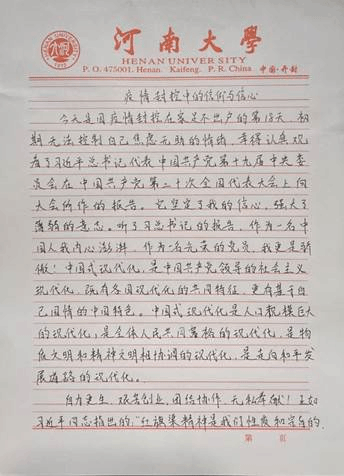 河南大學
HENAN UNIVERSITY
P. O. 475001. Henan. Kaifeng. P. R. China 中国·开封
疫情封控中的信仰与信心
今天是因疫情封控在家足不出户的第18天，初
期无法控制自己焦虑无助的情绪，幸得认真观
看了习近平总书记代表中国共产党第十九届中央委
员会在中国共产党第二十次全国代表大会上向
大会所作的报告。它坚定了我的信心，强大了
薄弱的意志。听了习总书记的报告，作为一名中
国人我内心澎湃，作为一名光荣的党员，我更是骄
傲！中国式现代化，是中国共产党领导的社会主义
现代化，既有各国现代化的共同特征，更有基于自
己国情的中国特色。中国式现代化是人口规模巨大
的现代化，是全体人民共同富裕的现代化，是物
质文明和精神文明相协调的现代化，是走向和平发
展道路的现代化。
自力更生，艰苦创业，团结协作，无私奉献！正如
习近平同志指出的，“红旗渠精神是我们性质和宗旨的
第 页